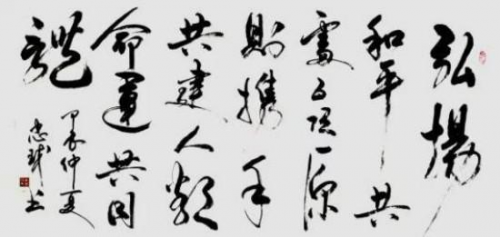 弘揚
和平共
處五項原
則携手
共建人類
命運共同
體
甲辰仲夏
忠